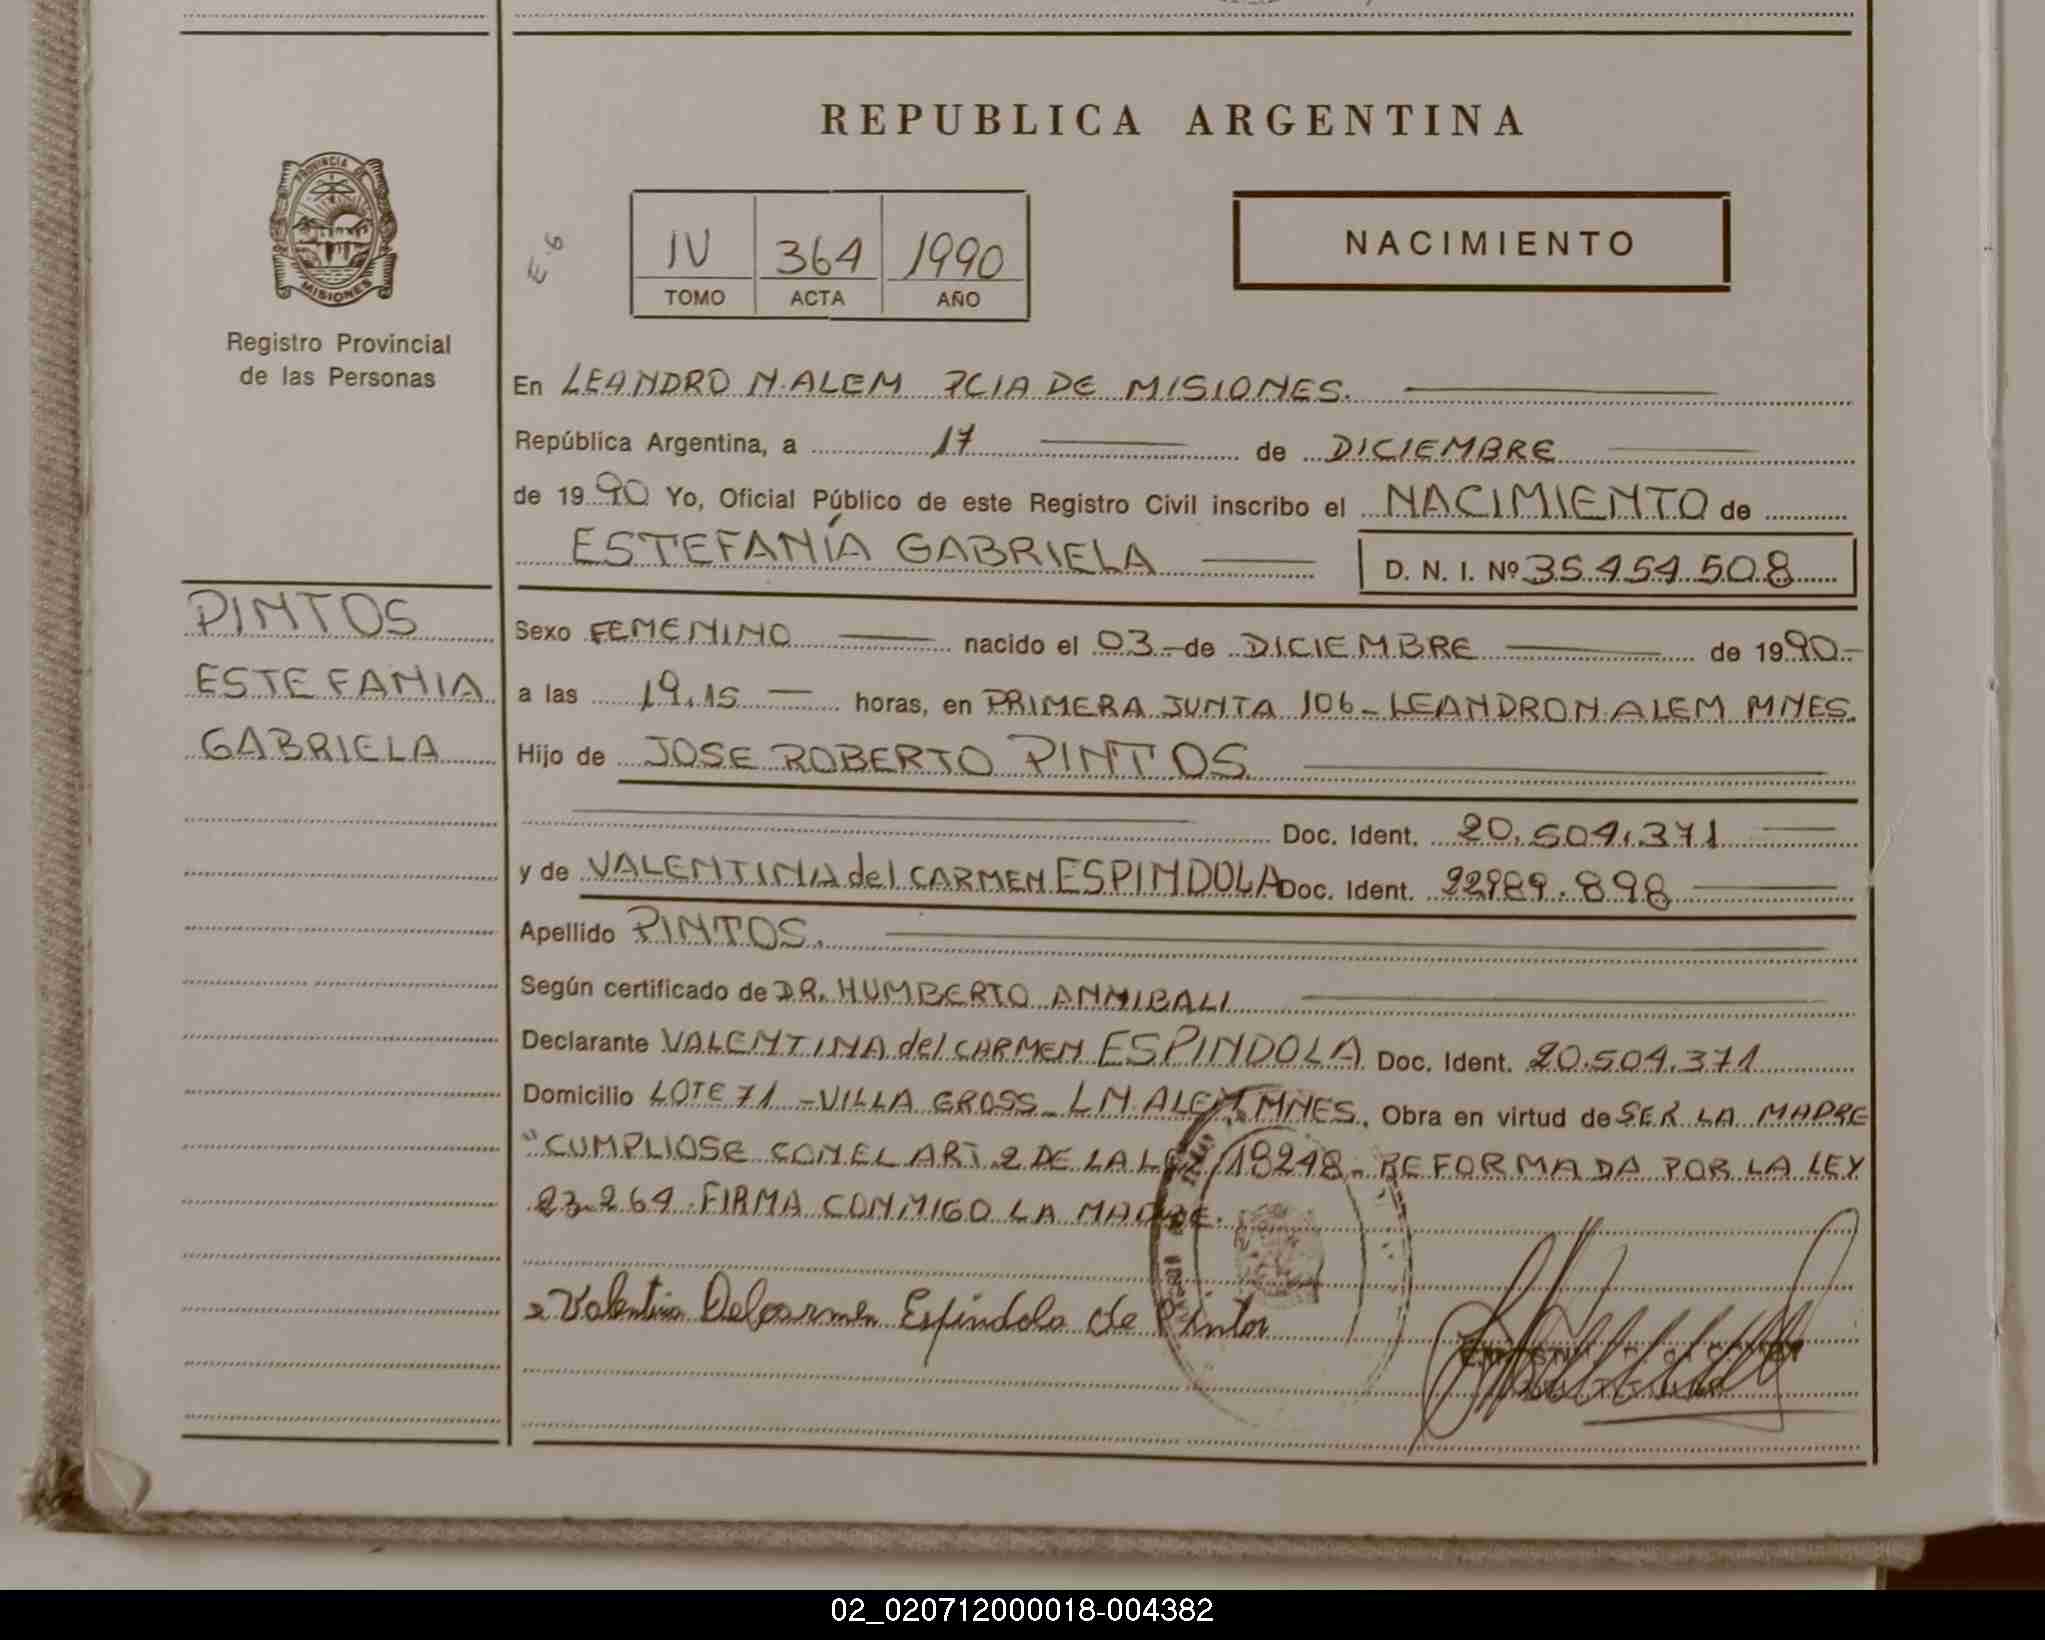 REPUBLICA ARGENTINA
PROVINCIA DE
MISIONES
Registro Provincial
de las Personas
E-6
IV 364 1990
TOMO ACTA AÑO
NACIMIENTO
En LEANDRO N. ALEM PCIA DE MISIONES.
República Argentina, a 17 de DICIEMBRE
de 1990 Yo, Oficial Público de este Registro Civil inscribo el NACIMIENTO de
ESTEFANÍA GABRIELA D. N. I. Nº 35.454.508
PINTOS
ESTEFANIA
GABRIELA
Sexo FEMENINO nacido el 03 de DICIEMBRE de 1990-
a las 19.15 horas, en PRIMERA JUNTA 106- LEANDRO N. ALEM MNES.
Hijo de JOSE ROBERTO PINTOS
Doc. Ident. 20.504.371
y de VALENTINA del CARMEN ESPINDOLA Doc. Ident. 22989.898
Apellido PINTOS.
Según certificado de DR. HUMBERTO ANNIBALI
Declarante VALENTINA del CARMEN ESPINDOLA Doc. Ident. 20.504.371
Domicilio LOTE 71 -VILLA GROSS- L N ALEM MNES. Obra en virtud de SER LA MADRE
"CUMPLIOSE CON EL ART 2 DE LA LEY 18248- REFORMADA POR LA LEY
23.264. FIRMA CONMIGO LA MADRE.
Valentina Delcarmen Espindola de Pintos
02_020712000018-004382